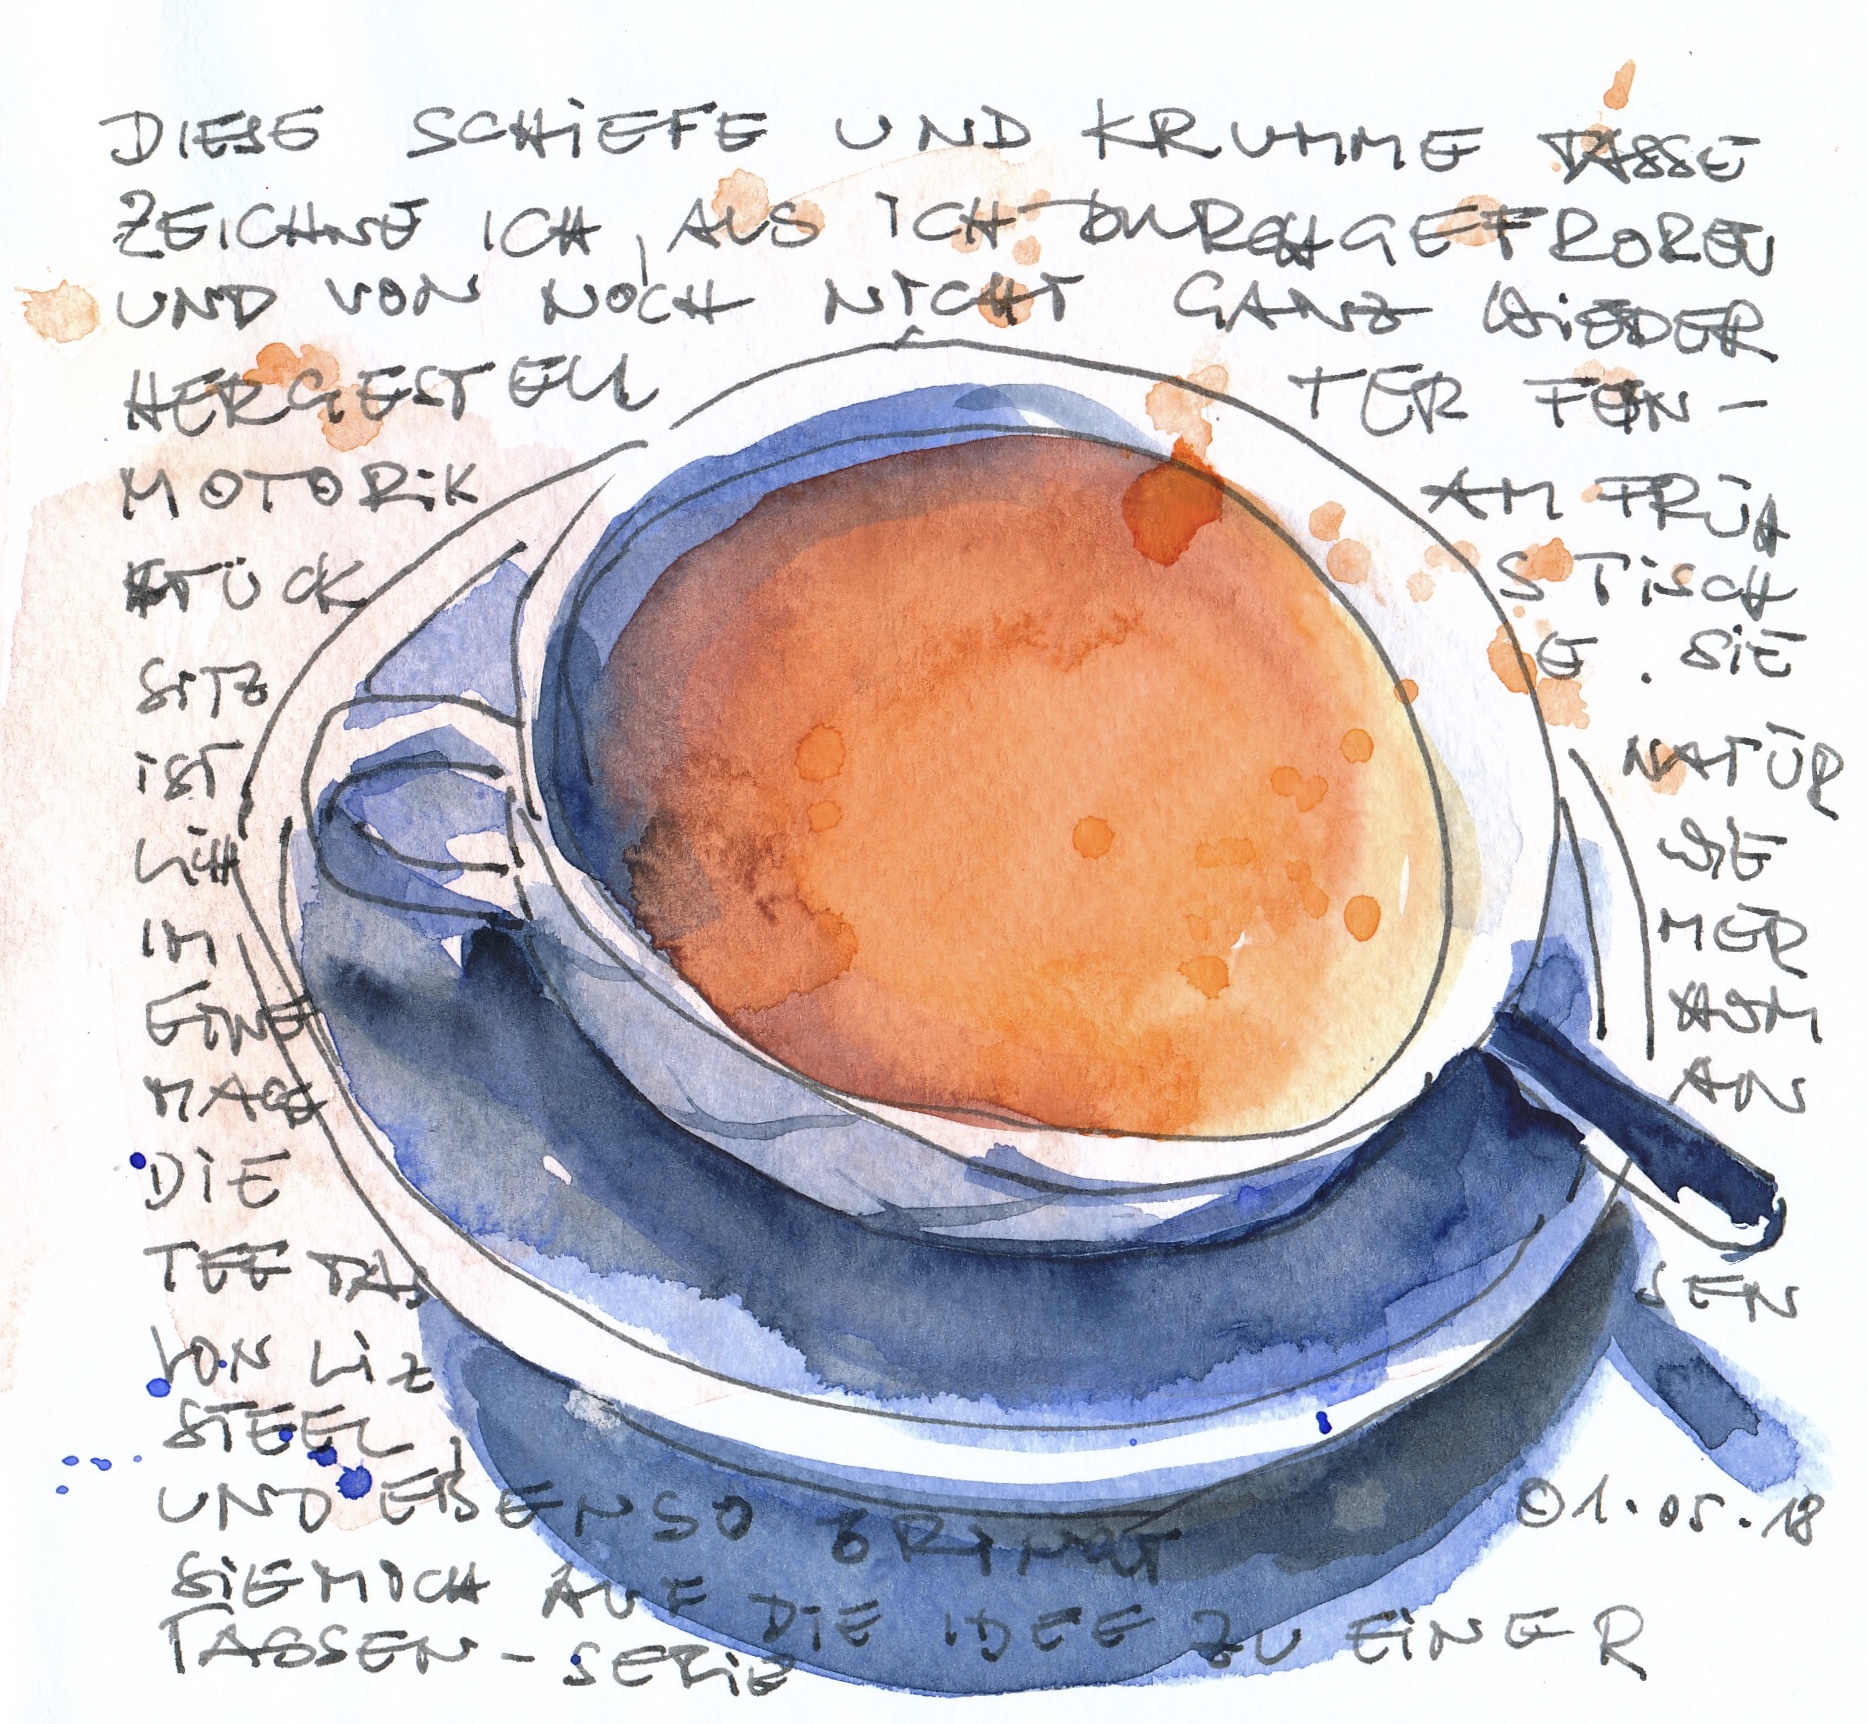 DIESE SCHIEFE UND KRUMME TASSE
ZEICHNE ICH, ALS ICH DURCHGEFROREN
UND VON NOCH NICHT GANZ WIEDER
HERGESTELL TER FEIN-
MOTORIK AM FRÜH
STÜCK S TISCH
SITZ E. SIE
IST NATÜR
LICH WIE
IM MER
EINE HOM
MAGE AN
DIE
TEE TAS SEN
VON LIZ
STEEL,
UND EBENSO BRINGT
©1.05.18
SIE MICH AUF DIE IDEE ZU EINER
TASSEN-SERIE